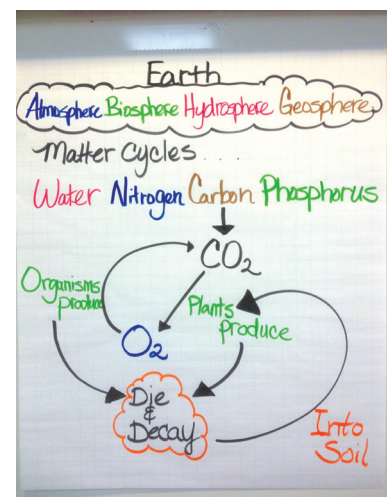 Earth
Atmosphere Biosphere Hydrosphere Geosphere
Matter Cycles . . .
Water Nitrogen Carbon Phosphorus
CO₂
Organisms
produce
Plants
produce
O₂
Die
&
Decay
Into
Soil